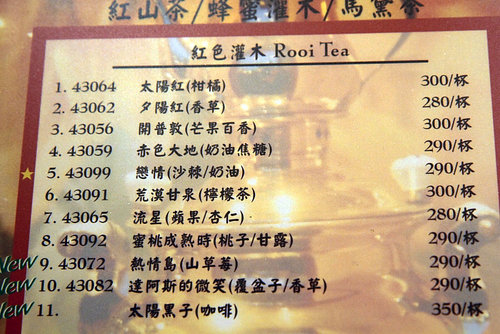 紅山茶/蜂蜜灌木/馬黛茶
紅色灌木 Rooi Tea
1. 43064 太陽紅(柑橘) 300/杯
2. 43062 夕陽紅(香草) 280/杯
3. 43056 開普敦(芒果百香) 300/杯
4. 43059 赤色大地(奶油焦糖) 290/杯
5. 43099 戀情(沙棘/奶油) 290/杯
6. 43091 荒漠甘泉(檸檬茶) 300/杯
7. 43065 流星(蘋果/杏仁) 280/杯
8. 43092 蜜桃成熟時(桃子/甘露) 290/杯
New 9. 43072 熱情島(山草莓) 290/杯
New 10. 43082 達阿斯的微笑(覆盆子/香草) 290/杯
New 11. 太陽黑子(咖啡) 350/杯